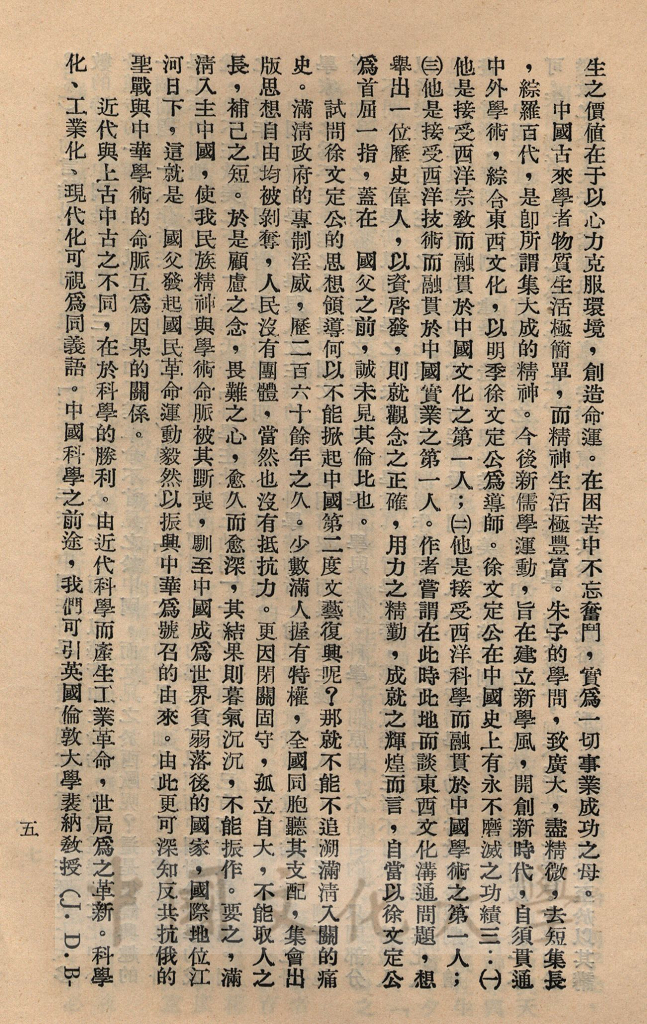 生之價值在于以心力克服環境，創造命運。在困苦中不忘奮鬥，實爲一切事業成功之母。
中國古來學者物質生活極簡單，而精神生活極豐富。朱子的學問，致廣大，盡精微，去短集長
，綜羅百代，是卽所謂集大成的精神。今後新儒學運動，旨在建立新學風，開創新時代，自須貫通
中外學術，綜合東西文化，以明季徐文定公爲導師。徐文定公在中國史上有永不磨滅之功績三：㈠
他是接受西洋宗敎而融貫於中國文化之第一人；㈡他是接受西洋科學而融貫於中國學術之第一人；
㈢他是接受西洋技術而融貫於中國實業之第一人。作者嘗謂在此時此地而談東西文化溝通問題，想
舉出一位歷史偉人，以資啓發，則就觀念之正確，用力之精勤，成就之輝煌而言，自當以徐文定公
爲首屈一指，蓋在　國父之前，誠未見其倫比也。
試問徐文定公的思想領導何以不能掀起中國第二度文藝復興呢？那就不能不追溯滿淸入關的痛
史。滿淸政府的專制淫威，歷二百六十餘年之久。少數滿人握有特權，全國同胞聽其支配，集會出
版思想自由均被剝奪，人民沒有團體，當然也沒有抵抗力。更因閉關固守，孤立自大，不能取人之
長，補己之短。於是顧慮之念，畏難之心，愈久而愈深，其結果則暮氣沉沉，不能振作。要之，滿
淸入主中國，使我民族精神與學術命脈被其斲喪，馴至中國成爲世界貧弱落後的國家，國際地位江
河日下，這就是　國父發起國民革命運動毅然以振興中華爲號召的由來。由此更可深知反共抗俄的
聖戰與中華學術的命脈互爲因果的關係。
近代與上古中古之不同，在於科學的勝利。由近代科學而產生工業革命，世局爲之革新。科學
化、工業化、現代化可視爲同義語。中國科學之前途，我們可引英國倫敦大學裴納敎授（J. D. B-
五